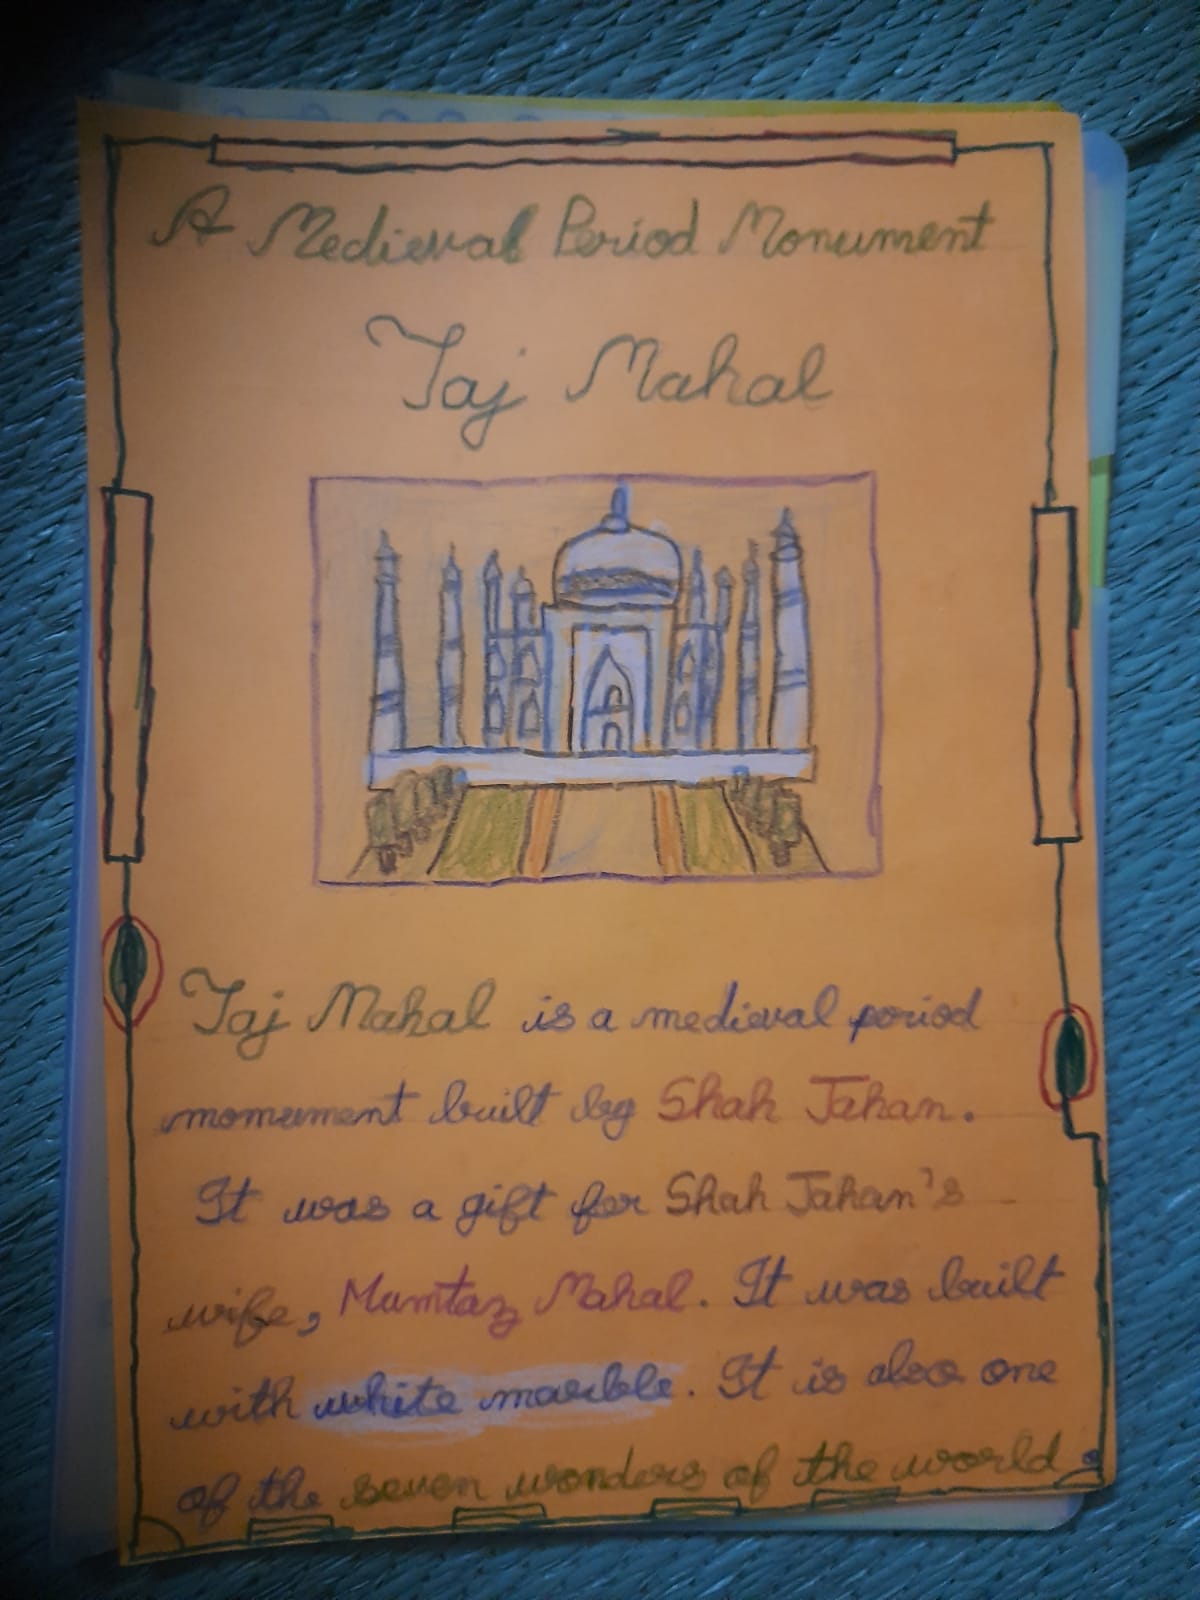 A Medieval Period Monument
Taj Mahal
Taj Mahal is a medieval period
monument built by Shah Jahan.
It was a gift for Shah Jahan's
wife, Mumtaz Mahal. It was built
with white marble. It is also one
of the seven wonders of the world